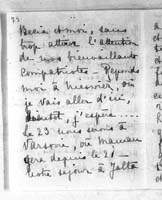 Becia et moi, sans
trop attirer l'attention
de nos bienveillants
compatriotes. Réponds
moi à
je vais aller d'ici,
bientôt, j'espère.....
Le 23 nous serons à
Varsovie, où Maman
sera depuis le 21 –
notre séjour à Yalta